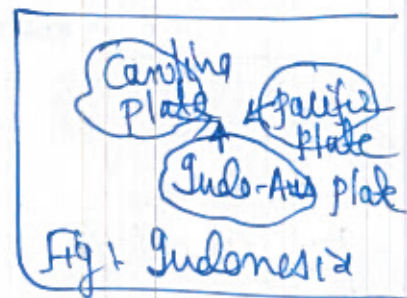 Carolina
plate
Pacific
plate
Indo-Aus plate
Fig: Indonesia